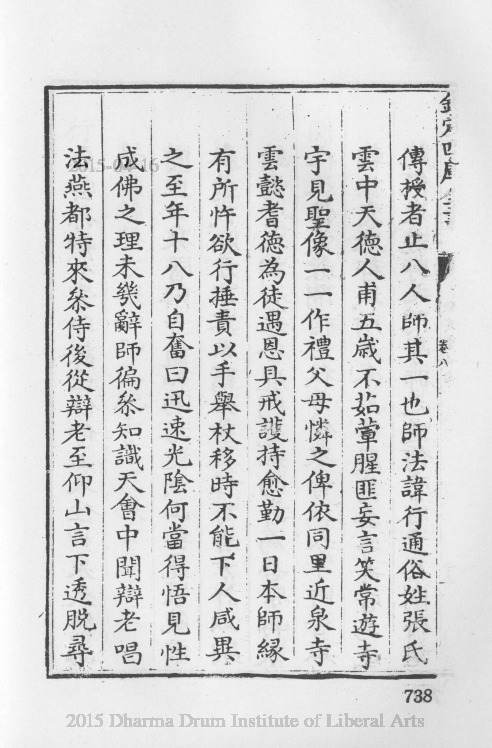 欽定四庫全書
卷八
傳授者止八人師其一也師法諱行通俗姓張氏
雲中天德人甫五歲不茹葷腥匪妄言笑常遊寺
宇見聖像一一作禮父母憐之俾依同里近泉寺
雲懿耆德為徒遇恩具戒護持愈勤一日本師緣
有所忤欲行捶責以手舉杖移時不能下人咸異
之至年十八乃自奮曰迅速光陰何當得悟見性
成佛之理未幾辭師徧叅知識天會中聞辯老唱
法燕都特來叅侍後從辯老至仰山言下透脫尋
738
2015 Dharma Drum Institute of Liberal Arts